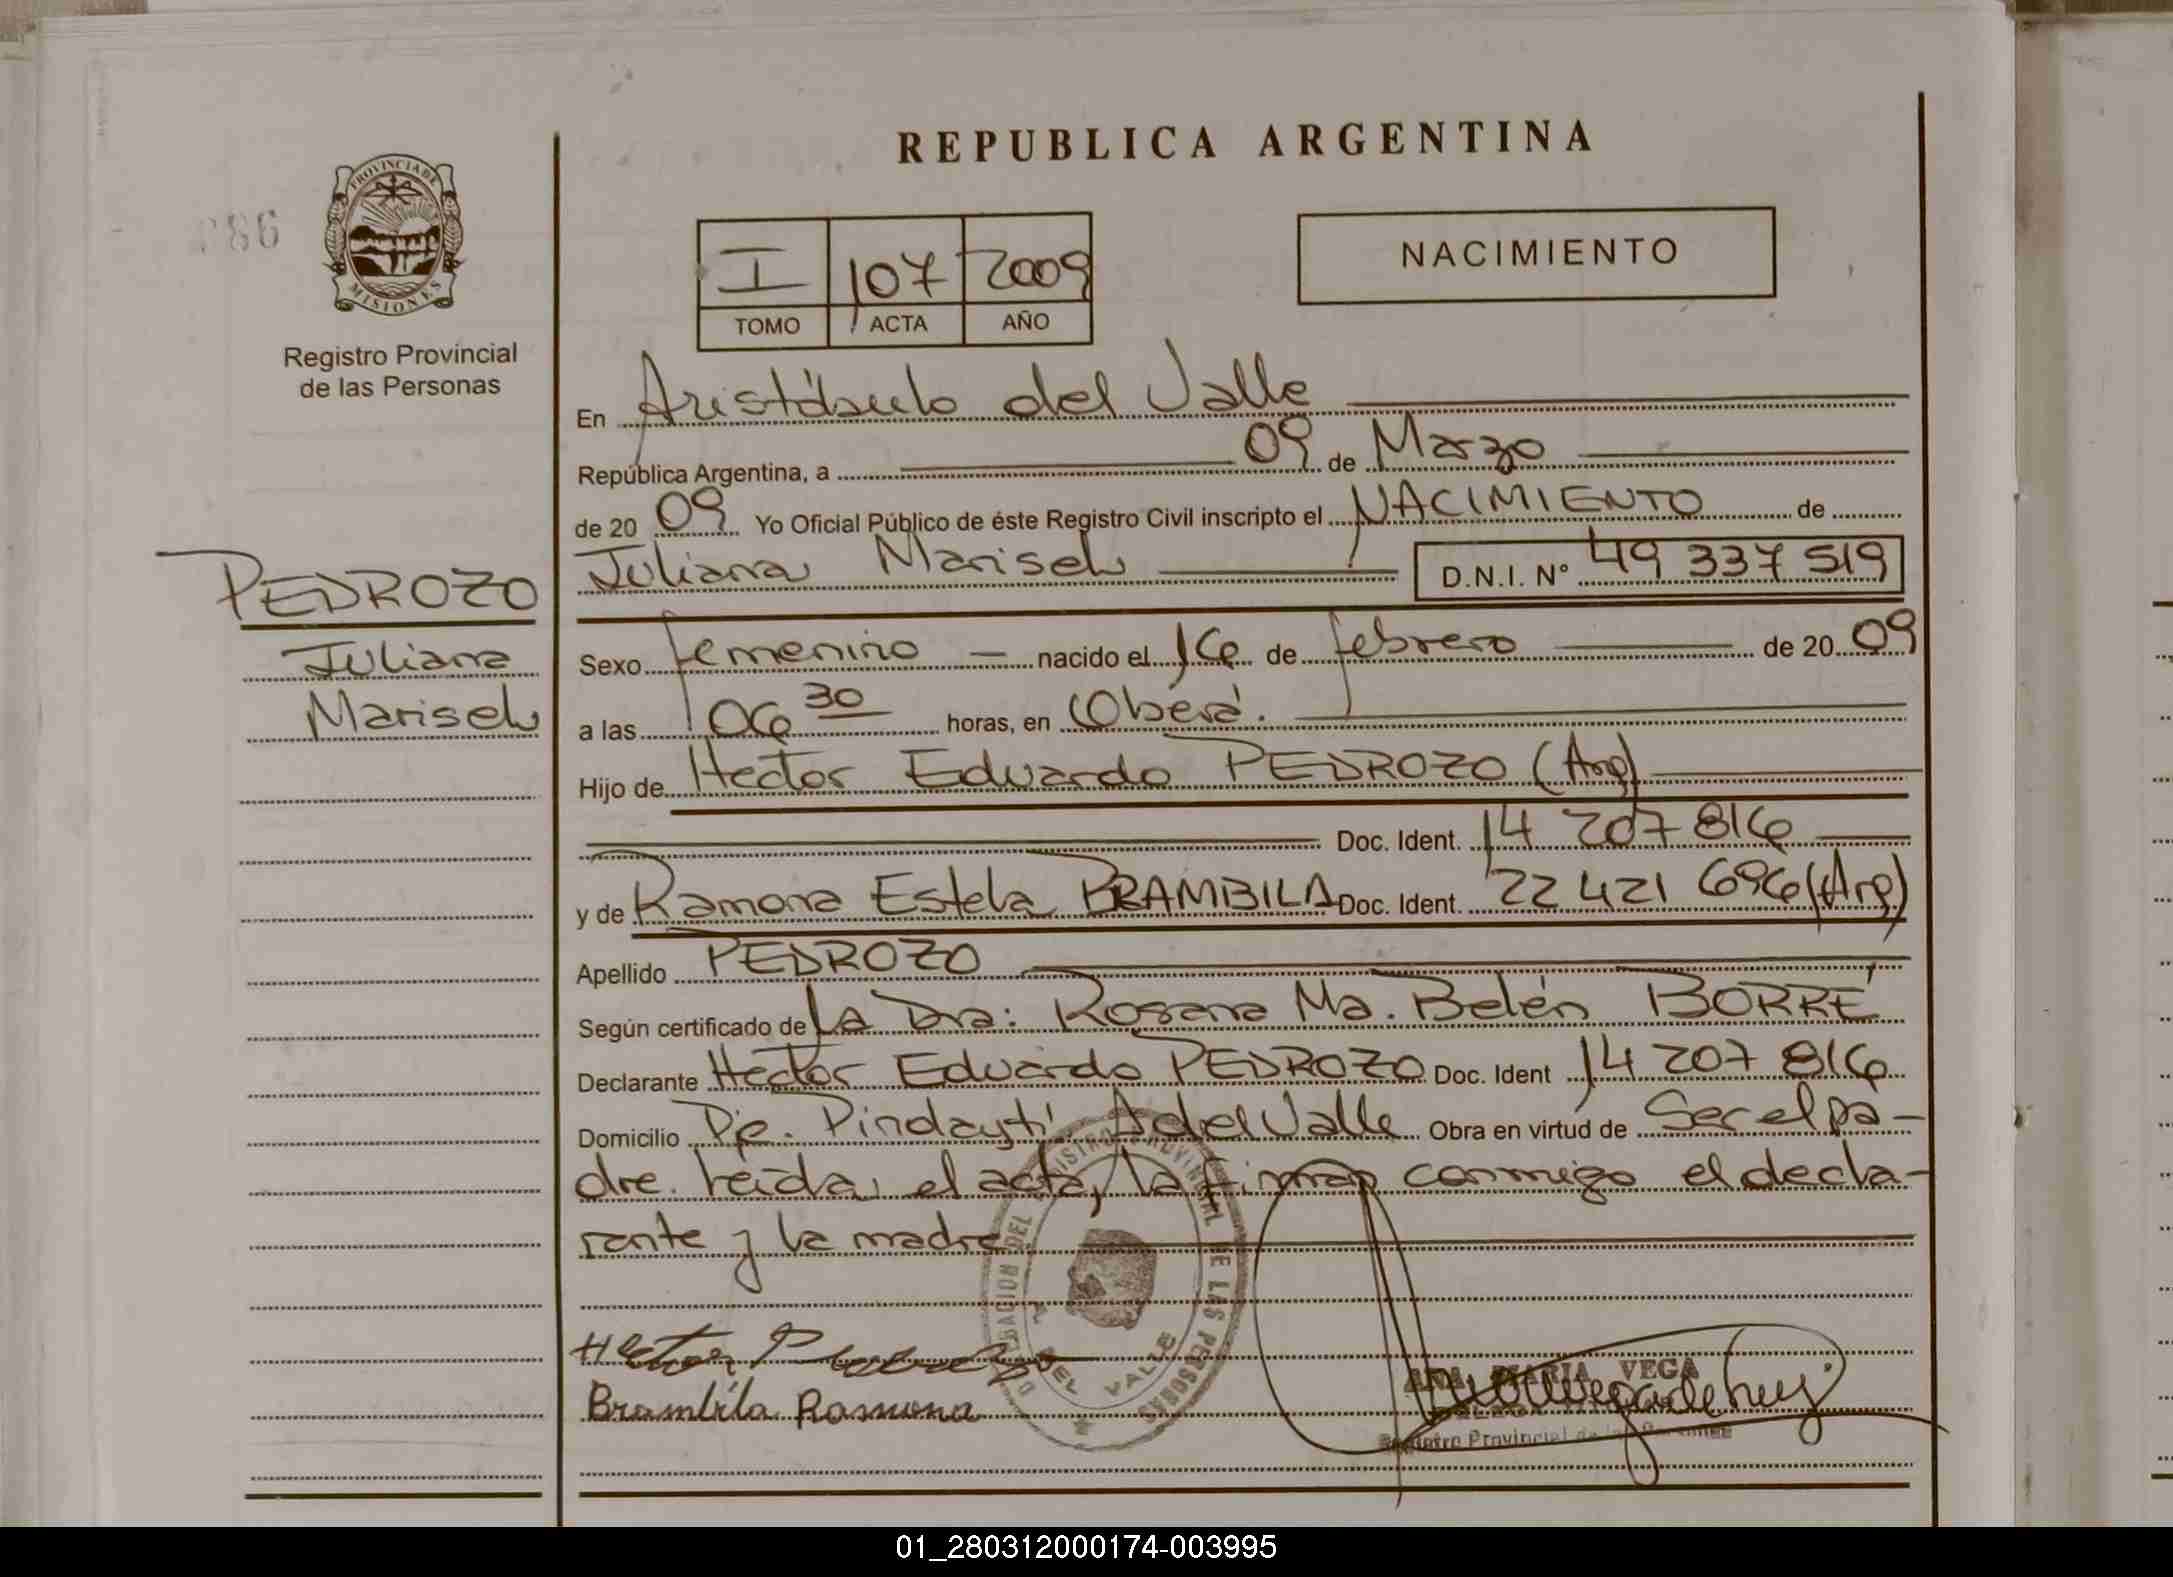 REPUBLICA ARGENTINA
PROVINCIA DE MISIONES
86
Registro Provincial
de las Personas
I 107 2009
TOMO ACTA AÑO
NACIMIENTO
En Aristóbulo del Valle
República Argentina, a 09 de Marzo
de 2009 Yo Oficial Público de éste Registro Civil inscripto el NACIMIENTO de
Juliana Marisel D.N.I. N° 49 337 519
PEDROZO
Juliana
Marisel
Sexo femenino nacido el 16 de febrero de 2009
a las 06 30 horas, en Oberá.
Hijo de Hector Eduardo PEDROZO (Arg)
Doc. Ident. 14 207 816
y de Ramona Estela BRAMBILA Doc. Ident. 22 421 696 (Arg)
Apellido PEDROZO
Según certificado de La Dra: Rosana Ma. Belén BORRÉ
Declarante Hector Eduardo PEDROZO Doc. Ident 14 207 816
Domicilio Pje. Pindaytí A del Valle Obra en virtud de Ser el pa-
dre. Leída el acta, la firman conmigo el decla-
rante y la madre
DEL REGISTRO PROVINCIAL DE LAS PERSONAS
DEL VALLE
Hector Pedrozo
Brambila Ramona
ANA MARIA VEGA
Registro Provincial de las Personas
01_280312000174-003995